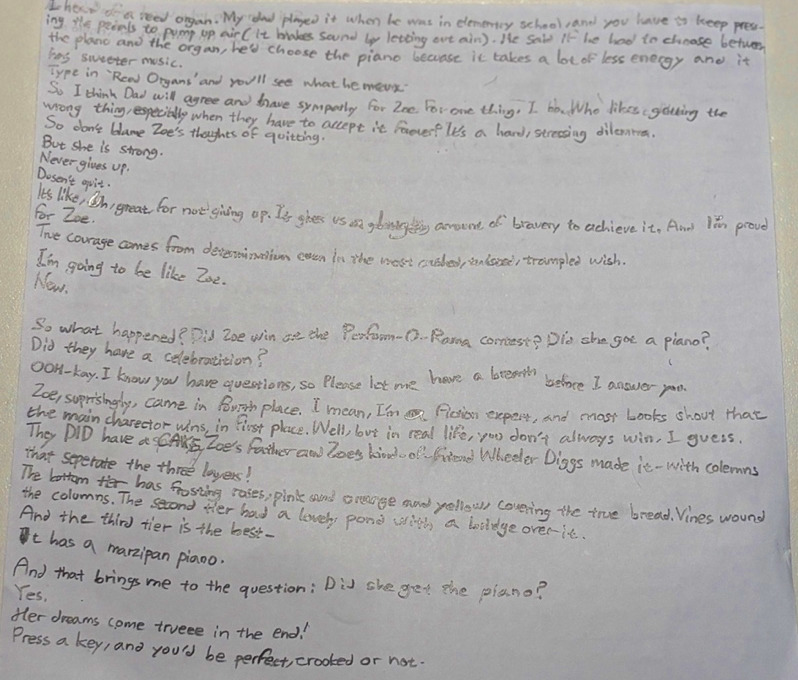 I heard of a reed organ. My dad played it when he was in elementry school, and you have to keep pres-
ing the pedals to pump up air (It makes sound by letting out air). He said if he had to choose between
the piano and the organ, he'd choose the piano becuase it takes a lot of less energy and it
has sweeter music.
Type in 'Reed Organs' and you'll see what he means.
So I think Dad will agree and have sympathy for Zoe. For one thing, I do. Who likes getting the
wrong thing, especially when they have to accept it forever? It's a hard, stressing dilemma.
So don't blame Zoe's thoughts of quitting.
But she is strong.
Never gives up.
Dosen't quit.
It's like, Oh, great, for not giving up. It gives us amount of bravery to achieve it. And I'm proud
for Zoe.
True courage comes from determination even in the most crushed, trampled wish.
I'm going to be like Zoe.
Now.
So what happened? Did Zoe win at the Perform-O-Rama contest? Did she get a piano?
Did they have a celebratition?
OOH-kay. I know you have questions, so Please let me have a breath before I answer you.
Zoe, suprisingly, came in fourth place. I mean, I'm a fiction expert, and most books shout that
the main charector wins, in first place. Well, but in real life, you don't always win, I guess.
They DID have a CAKE, Zoe's father and Zoe's kind-of-friend Wheeler Diggs made it - with colemns
that seperate the three layers!
The bottom tier has frosting roses, pink and orange and yellow covering the true bread. Vines wound
the columns. The second tier had a lovely pond with a bridge over it.
And the third tier is the best-
It has a marzipan piano.
And that brings me to the question: Did she get the piano?
Yes.
Her dreams come trueee in the end!
Press a key, and you'd be perfect, crooked or not.